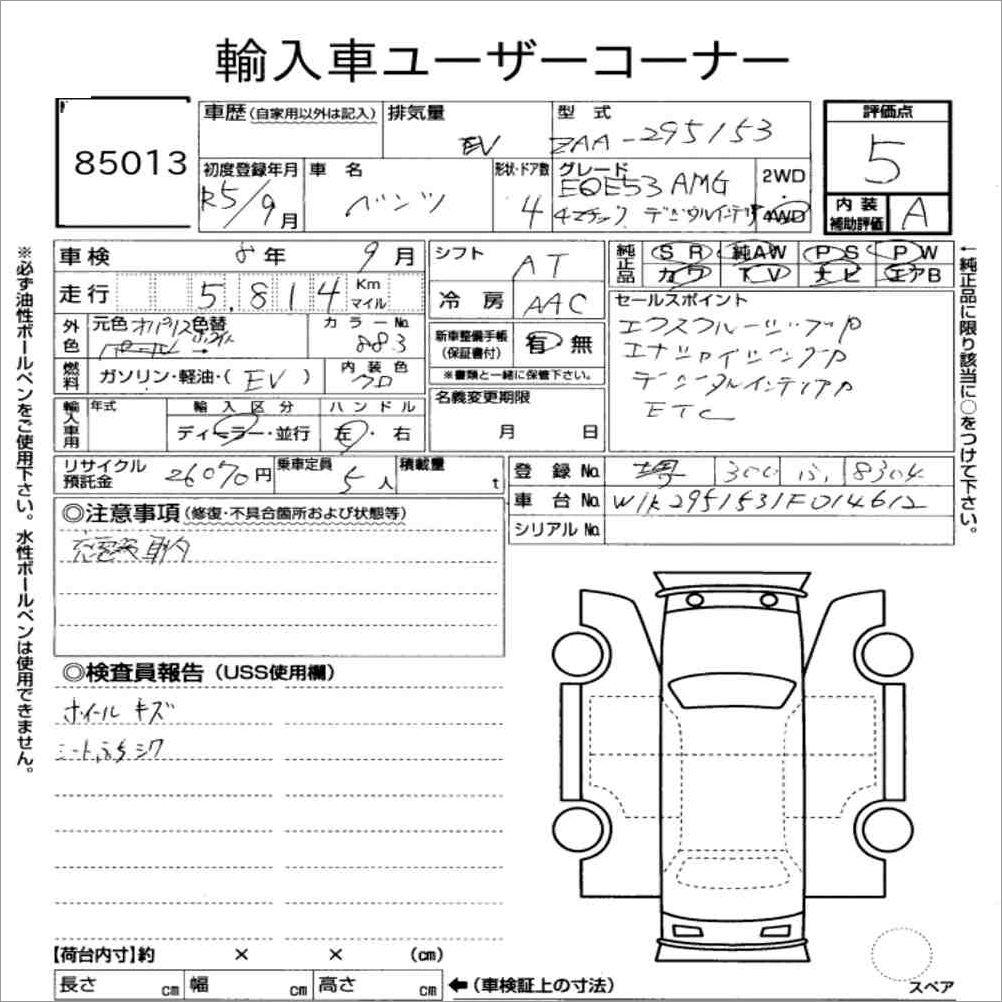 輸入車ユーザーコーナー
85013
車歴(自家用以外は記入) 排気量 EV 型式 ZAA-295153
評価点 5
初度登録年月 R5/9月 車名 ベンツ 形状・ドア数 4 グレード EQE53 AMG 4マチック デジタルインテリ 2WD 4WD
内装補助評価 A
車検 8年 9月 シフト AT 純正品 SR 純AW PS PW
カワ TV ナビ エアB
走行 5,814 Km マイル 冷房 AAC
セールスポイント
エクスクルーシブP
エナジャイジングP
デジタルインテリアP
ETC
外色 元色 色替 カラーNo. 883
新車整備手帳(保証書付) 有 無
※書類と一緒に保管下さい。
燃料 ガソリン・軽油・(EV) 内装色 クロ
名義変更期限 月 日
輸入車用 年式 輸入区分 ディーラー・並行 ハンドル 左・右
リサイクル預託金 26070円 乗車定員 5人 積載量 t
登録No. 堺 300 8304
車台No. W1K2951531F014612
シリアルNo.
◎注意事項(修復・不具合箇所および状態等)
◎検査員報告(USS使用欄)
ホイール キズ
シート シワ
【荷台内寸】約 × × (cm)
長さ cm 幅 cm 高さ cm ←(車検証上の寸法)
スペア
※必ず油性ボールペンをご使用下さい。水性ボールペンは使用できません。
←純正品に限り該当に○をつけて下さい。